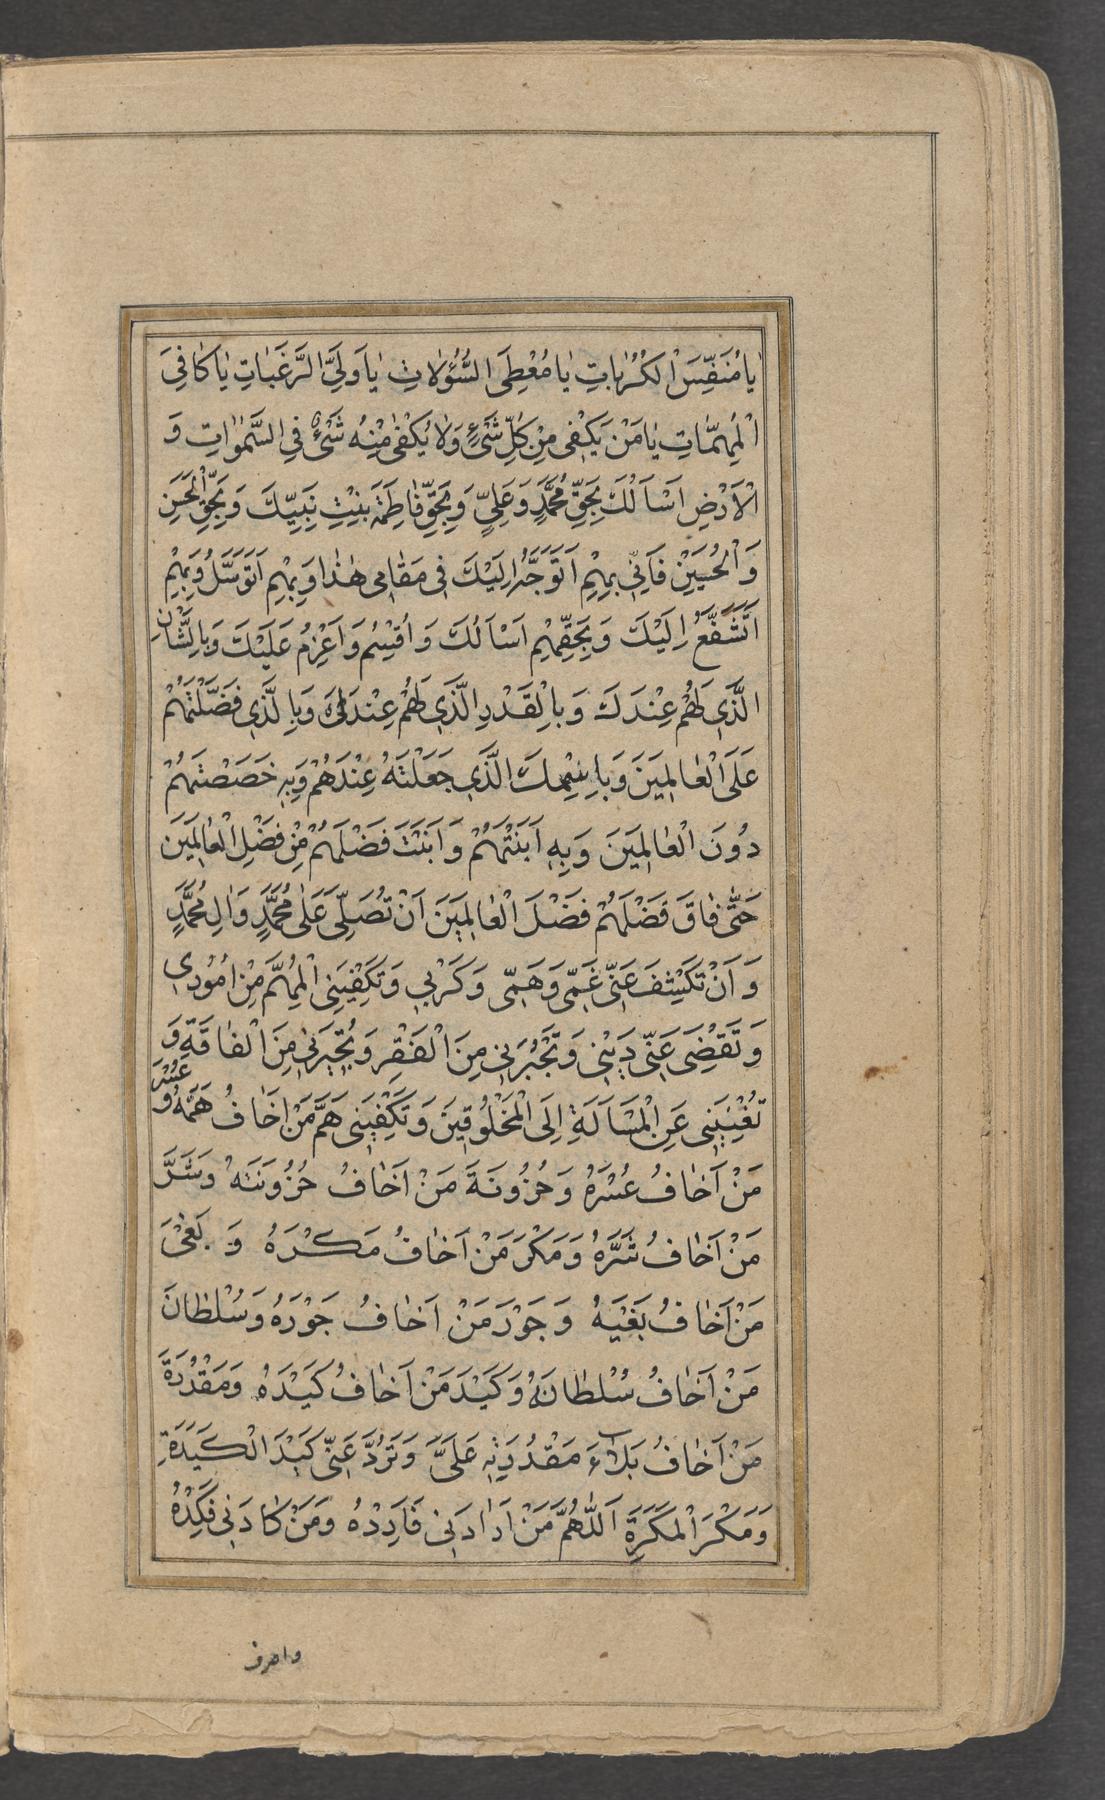 يٰا مُنَفِّسَ الْكُرُبٰاتِ يٰا مُعْطِيَ السُّؤُلاٰتِ يٰا وَلِيَّ الرَّغَبٰاتِ يٰا كٰافِيَ
الْمُهِمّٰاتِ يٰا مَنْ يَكْفي مِنْ كُلِّ شَيْءٍ وَلاٰ يَكْفي مِنْهُ شَيْءٌ فِي السَّمٰوٰاتِ وَ
الْاَرْضِ اَسْاَلُكَ بِحَقِّ مُحَمَّدٍ وَعَلِيٍّ وَبِحَقِّ فٰاطِمَةَ بِنْتِ نَبِيِّكَ وَبِحَقِّ الْحَسَنِ
وَالْحُسَيْنِ فَاِنّي بِهِمْ اَتَوَجَّهُ اِلَيْكَ في مَقٰامي هٰذٰا وَبِهِمْ اَتَوَسَّلُ وَبِهِمْ
اَتَشَفَّعُ اِلَيْكَ وَبِحَقِّهِمْ اَسْاَلُكَ وَاُقْسِمُ وَاَعْزِمُ عَلَيْكَ وَبِالشَّاْنِ
الَّذي لَهُمْ عِنْدَكَ وَبِالْقَدْرِ الَّذي لَهُمْ عِنْدَكَ وَبِالَّذي فَضَّلْتَهُمْ
عَلَى الْعٰالَمينَ وَبِاسْمِكَ الَّذي جَعَلْتَهُ عِنْدَهُمْ وَبِهِ خَصَصْتَهُمْ
دُونَ الْعٰالَمينَ وَبِهِ اَبَنْتَهُمْ وَاَبَنْتَ فَضْلَهُمْ مِنْ فَضْلِ الْعٰالَمينَ
حَتّٰى فٰاقَ فَضْلُهُمْ فَضْلَ الْعٰالَمينَ اَنْ تُصَلِّيَ عَلٰى مُحَمَّدٍ وَاٰلِ مُحَمَّدٍ
وَاَنْ تَكْشِفَ عَنّي غَمّي وَهَمّي وَكَرْبي وَتَكْفِيَنِي الْمُهِمَّ مِنْ اُمُوري
وَتَقْضِيَ عَنّي دَيْني وَتَجْبُرَني مِنَ الْفَقْرِ وَتُجيرَني مِنَ الْفٰاقَةِ وَ
تُغْنِيَني عَنِ الْمَسْاَلَةِ اِلَى الْمَخْلُوقينَ وَتَكْفِيَني هَمَّ مَنْ اَخٰافُ هَمَّهُ وَ عُسْرَ
مَنْ اَخٰافُ عُسْرَهُ وَحُزُونَةَ مَنْ اَخٰافُ حُزُونَتَهُ وَشَرَّ
مَنْ اَخٰافُ شَرَّهُ وَمَكْرَ مَنْ اَخٰافُ مَكْرَهُ وَ بَغْيَ
مَنْ اَخٰافُ بَغْيَهُ وَجَوْرَ مَنْ اَخٰافُ جَوْرَهُ وَسُلْطٰانَ
مَنْ اَخٰافُ سُلْطٰانَهُ وَكَيْدَ مَنْ اَخٰافُ كَيْدَهُ وَمَقْدُرَةَ
مَنْ اَخٰافُ بَلاٰءَ مَقْدُرَتِهِ عَلَيَّ وَتَرُدَّ عَنّي كَيْدَ الْكَيَدَةِ
وَمَكْرَ الْمَكَرَةِ اَللّٰهُمَّ مَنْ اَرٰادَني فَاَرِدْهُ وَمَنْ كٰادَني فَكِدْهُ
واصرف